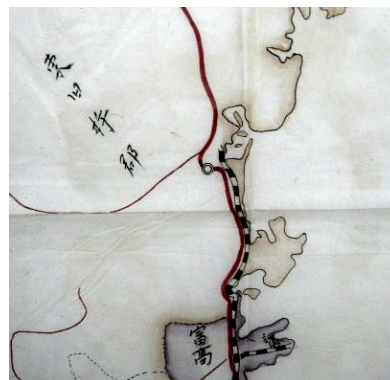 東臼杵郡
富高